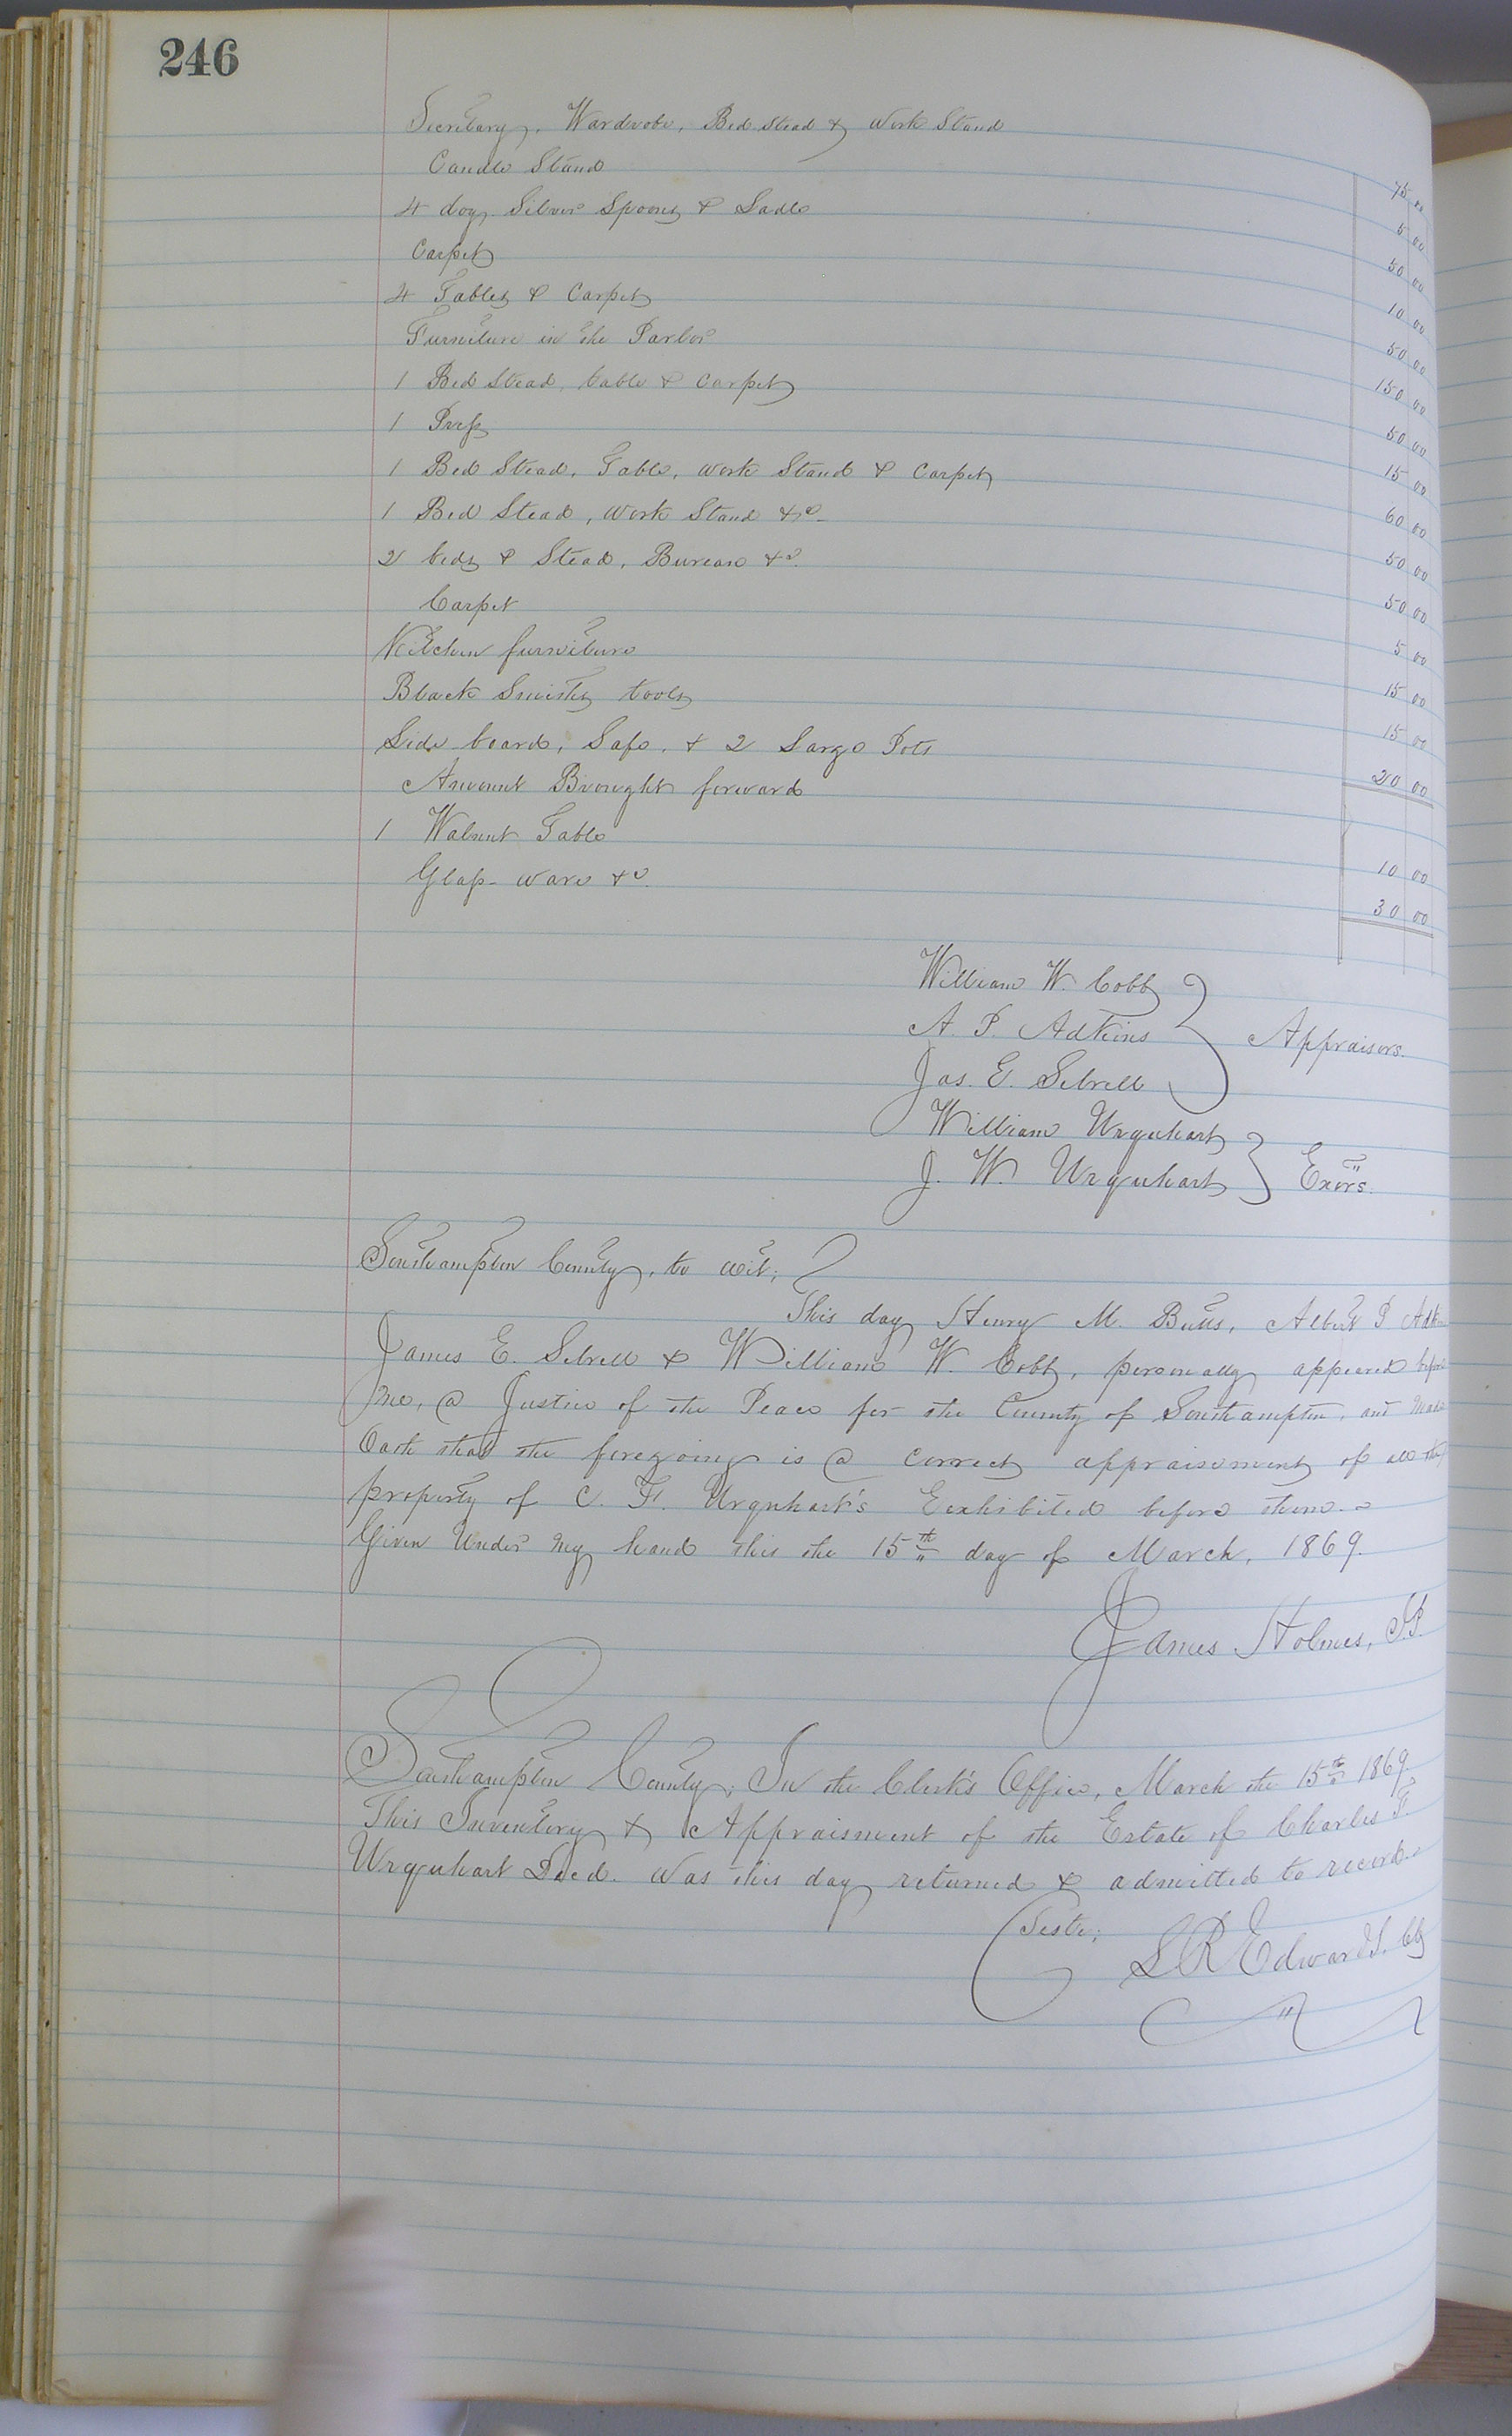 246
Secretary, Wardrobe, Bed Stead & Work Stand 75 00
Candle Stand 5 00
4 doz Silver Spoons & Ladle 50 00
Carpet 10 00
4 Tables & Carpet 50 00
Furniture in the Parlor 150 00
1 Bed Stead, table & Carpet 50 00
1 Press 15 00
1 Bed Stead, Table, Work Stand & Carpet 60 00
1 Bed Stead, Work Stand &c 50 00
2 beds & Stead, Bureau &c. 50 00
Carpet 5 00
Kitchen furniture 15 00
Black Smiths tools 15 00
Side board, Safe, & 2 Large Pots 20 00
Amount Brought forward
1 Walnut Table 10 00
Glass ware &c. 30 00
William W. Cobb
A. P. Adkins Appraisors.
Jas. E. Sebrell
William Urquhart
J. W. Urquhart Exors.
Southampton County, to wit;
This day Henry M. Butts, Albert P. Adk
James E. Sebrell & William W. Cobb, personally appeared before
me, a Justice of the Peace for the County of Southampton, and Made
Oath that the foregoing is a correct appraisement of all the
property of C. F. Urquhart's Exhibited before them.
Given Under my hand this the 15th day of March, 1869.
James Holmes, J.P.
Southampton County; In the Clerk's Office, March the 15th 1869.
This Inventory & Appraisment of the Estate of Charles F.
Urquhart Decd. Was this day returned & admitted to record.
Teste;
L R Edwards. Clk